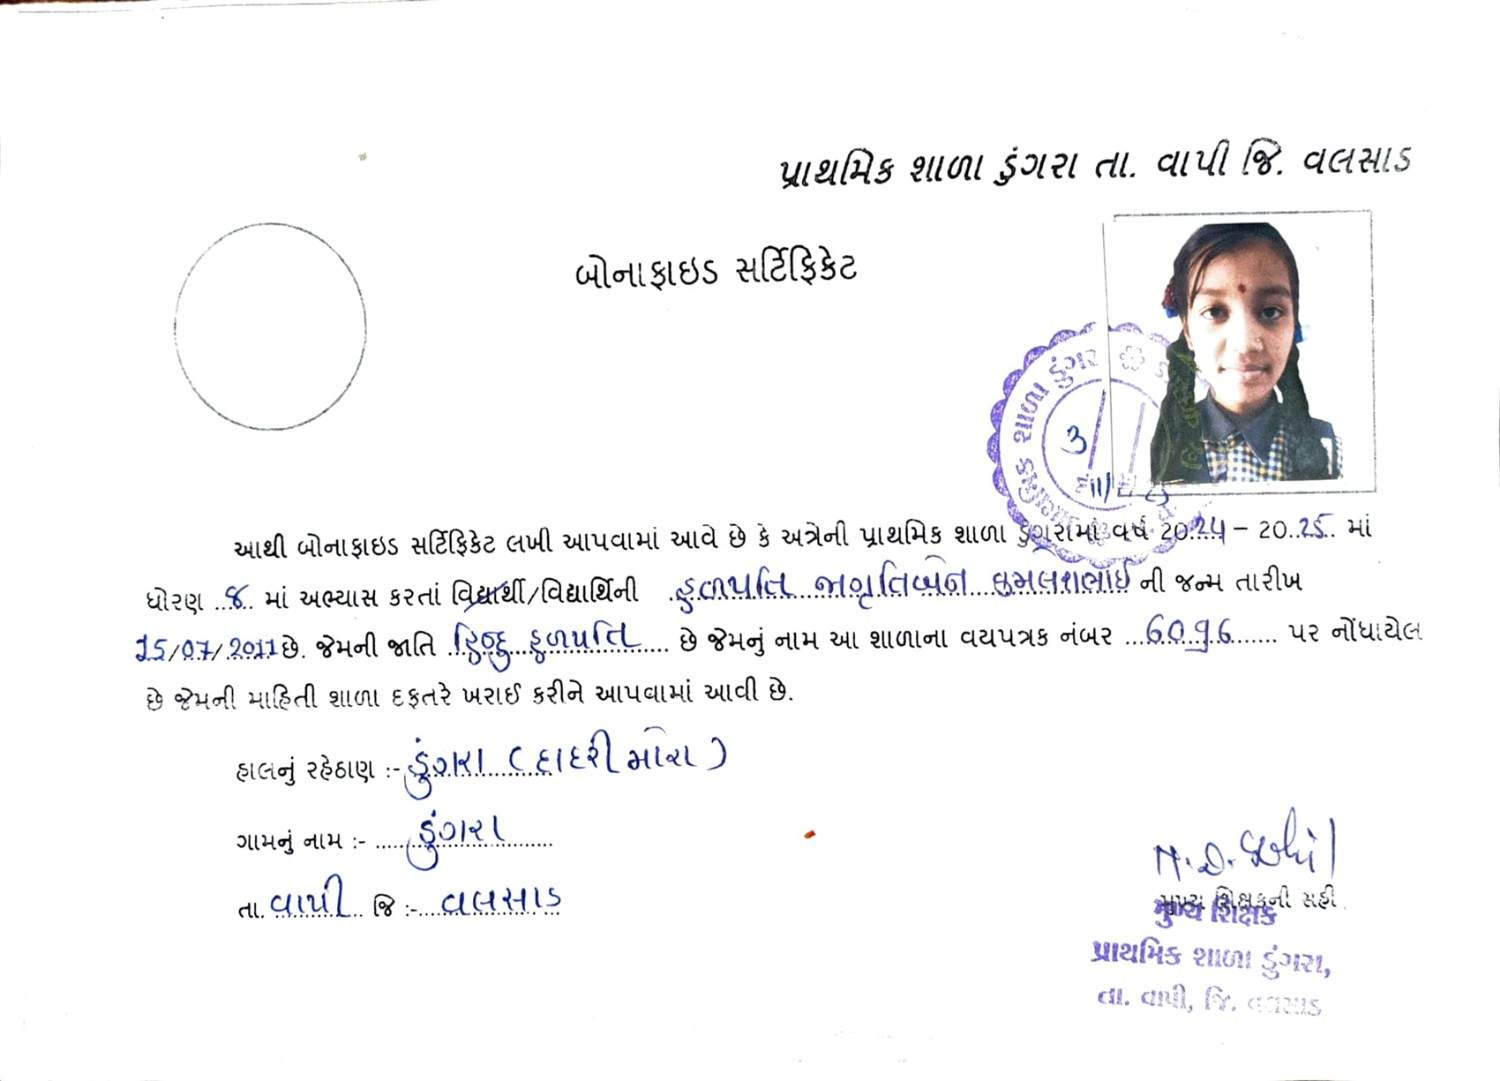 પ્રાથમિક શાળા ડુંગરા તા. વાપી જિ. વલસાડ
બોનાફાઇડ સર્ટિફિકેટ
શાળા ડુંગર
3/
આથી બોનાફાઇડ સર્ટિફિકેટ લખી આપવામાં આવે છે કે અત્રેની પ્રાથમિક શાળા ડુંગરામાં વર્ષ 20.24 – 20..25. માં
ધોરણ ..8.. માં અભ્યાસ કરતાં વિદ્યાર્થી/વિદ્યાર્થિની ..હળપતિ જાગૃતિબેન ની જન્મ તારીખ
15/07/2011 છે. જેમની જાતિ .હિન્દુ હળપતિ...... છે જેમનું નામ આ શાળાના વયપત્રક નંબર ...6096....... પર નોંધાયેલ
છે જેમની માહિતી શાળા દફતરે ખરાઈ કરીને આપવામાં આવી છે.
હાલનું રહેઠાણ :- ડુંગરા (દાદરી મોરા)
ગામનું નામ :- .....ડુંગરા........
તા. વાપી.. જિ :-....વલસાડ
મુખ્ય શિક્ષકની સહી
મુખ્ય શિક્ષક
પ્રાથમિક શાળા ડુંગરા,
તા. વાપી, જિ. વલસાડ